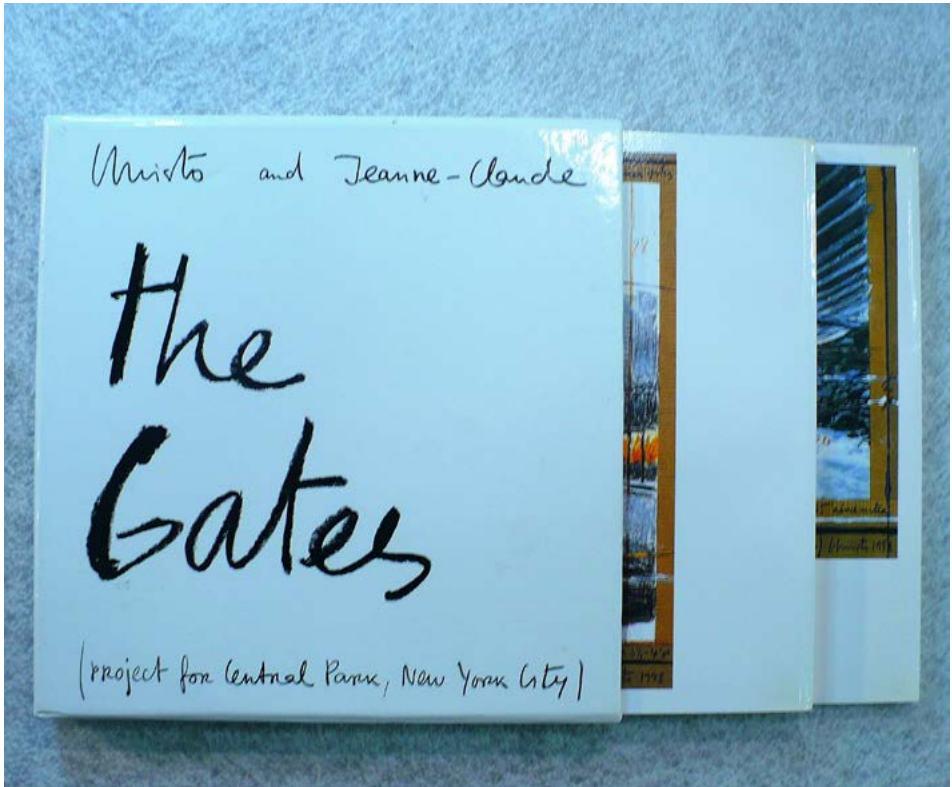 Christo and Jeanne-Claude
The
Gates
(Project for Central Park, New York City)
Christo 1998